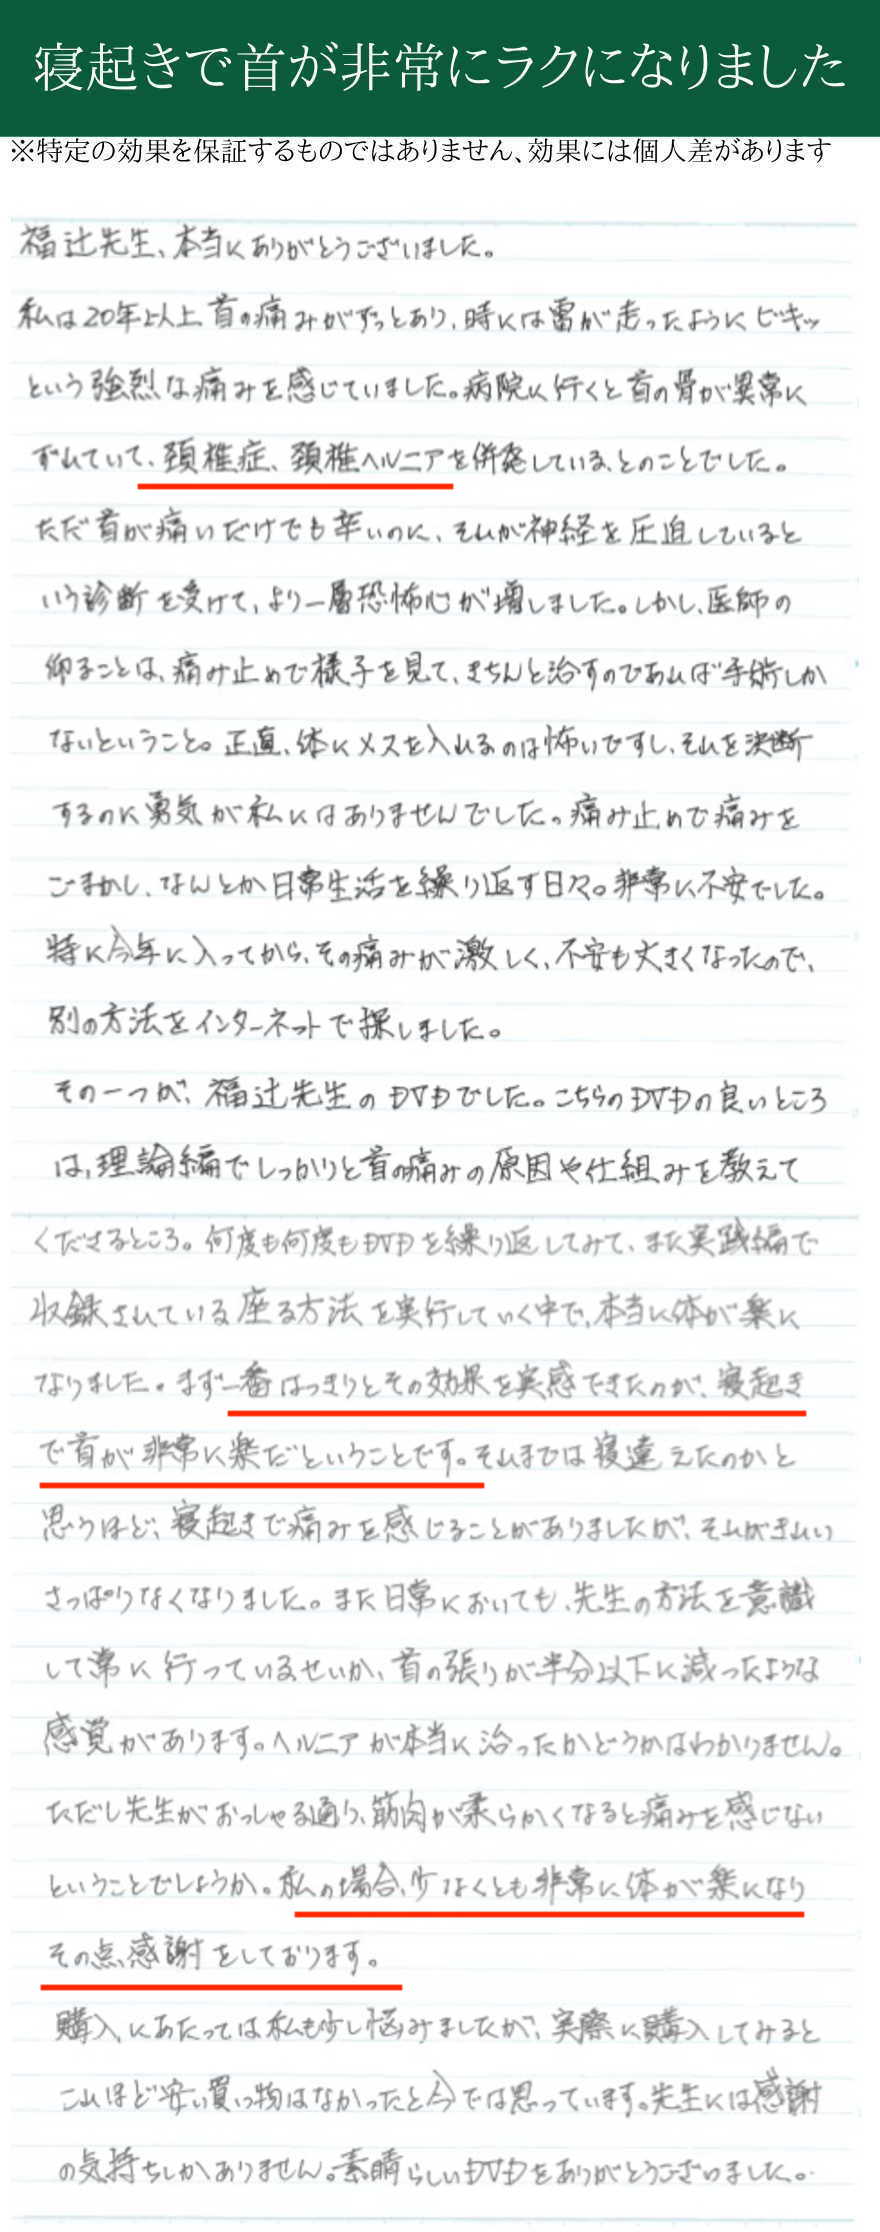 寝起きで首が非常にラクになりました
※特定の効果を保証するものではありません、効果には個人差があります
福辻先生、本当にありがとうございました。
私は20年以上首の痛みがずっとあり、時には雷が走ったようにビキッ
という強烈な痛みを感じていました。病院に行くと首の骨が異常に
ずれていて、頚椎症、頚椎ヘルニアを併発している、とのことでした。
ただ首が痛いだけでも辛いのに、それが神経を圧迫していると
いう診断を受けて、より一層恐怖心が増しました。しかし、医師の
仰ることは、痛み止めで様子を見て、きちんと治すのであれば手術しか
ないということ。正直、体にメスを入れるのは怖いですし、それを決断
するのに勇気が私にはありませんでした。痛み止めで痛みを
ごまかし、なんとか日常生活を繰り返す日々。非常に不安でした。
特に今年に入ってから、その痛みが激しく、不安も大きくなったので、
別の方法をインターネットで探しました。
その一つが、福辻先生のDVDでした。こちらのDVDの良いところ
は、理論編でしっかりと首の痛みの原因や仕組みを教えて
くださるところ。何度も何度もDVDを繰り返してみて、また実践編で
収録されている座る方法を実行していく中で、本当に体が楽に
なりました。まず一番はっきりとその効果を実感できたのが、寝起き
で首が非常に楽だということです。それまでは寝違えたのかと
思うほど、寝起きで痛みを感じることがありましたが、それがきれい
さっぱりなくなりました。また日常においても、先生の方法を意識
して常に行っているせいか、首の張りが半分以下に減ったような
感覚があります。ヘルニアが本当に治ったかどうかはわかりません。
ただし先生がおっしゃる通り、筋肉が柔らかくなると痛みを感じない
ということでしょうか。私の場合、少なくとも非常に体が楽になり
その点、感謝をしております。
購入にあたっては私も少し悩みましたが、実際に購入してみると
これほど安い買い物はなかったと今では思っています。先生には感謝
の気持ちしかありません。素晴らしいDVDをありがとうございました。